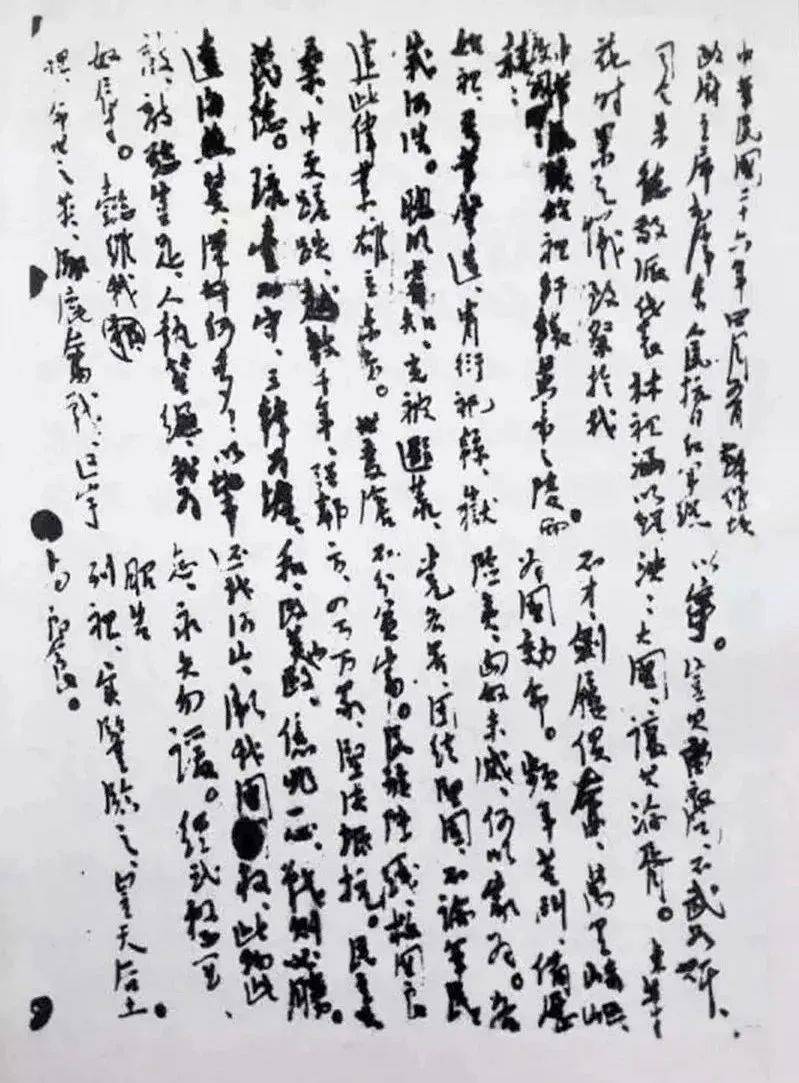 中華民國二十六年四月五日 蘇維埃
政府主席毛澤東人民抗日紅軍總
司令朱德敬派代表林祖涵以鮮
花時果之儀致祭於我
中華民族始祖軒轅黃帝之陵而
始祖、吾華肇造、胄衍祀綿、嶽
峨河浩。聰明睿知、光被遐荒、
建此偉業、雄立東方。世變滄
桑、中更蹉跌、越數千年、强鄰
蔑德。琉臺不守、三韓為墟、
遼海燕冀、漢奸何多、以地事
敵、敵欲豈足、人執笞繩、我為
奴辱。懿維我祖
命世之英、涿鹿奮戰、區宇
以寧。豈其苗裔、不武如斯、
泱泱大國、讓其淪胥。東等
不才、劍屨俱奮、萬里崎嶇、
為國効命。頻年苦鬥、備歷
險夷、匈奴未滅、何以家為。各
黨各界、團結堅固、不論軍民、
不分貧富。民族陣綫、救國良
方、四万万衆、堅決抵抗。民主共
和、改革内政、億兆一心、戰則必勝。
還我河山、衛我國權、此物此
志、永矢勿諼。經武整軍、
昭告
列祖、實鑒臨之、皇天后土。
尚饗。